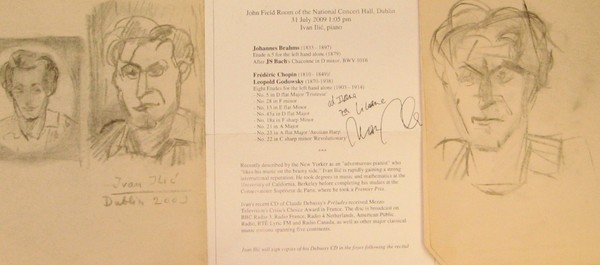 Ivan Ilić
Dublin 2009
John Field Room of the National Concert Hall, Dublin
31 July 2009 1:05 pm
Ivan Ilić, piano
Johannes Brahms (1833 - 1897)
Etude n.5 for the left hand alone (1879)
After JS Bach's Chaconne in D minor, BWV 1016
Frédéric Chopin (1810 - 1849)
Leopold Godowsky (1870-1938)
Eight Etudes for the left hand alone (1903 - 1914)
- No. 5 in D flat Major
- No. 28 in F minor
- No. 13 in E flat Minor
- No. 45a in D flat Major
- No. 16a in F sharp Minor
- No. 21 in A Major
- No. 22 in C sharp minor 'Revolutionary'
***
Recently described by the New Yorker as an "adventurous pianist" who
"likes his music on the brainy side," Ivan Ilić is rapidly gaining a strong
international reputation. He took degrees in music and mathematics at the
University of California, Berkeley before completing his studies at the
Conservatoire Supérieur de Paris, where he took a Premier Prix.
Ivan's recent CD of Claude Debussy's Préludes received Mezzo
Television's Critic's Choice Award in France. The disc is broadcast on
BBC Radio 3, Radio France, Radio 4 Netherlands, American Public
Radio, RTE Lyric FM and Radio Canada, as well as other major classical
music stations spanning five continents.
Ivan Ilić will sign copies of his Debussy CD in the foyer following the recital